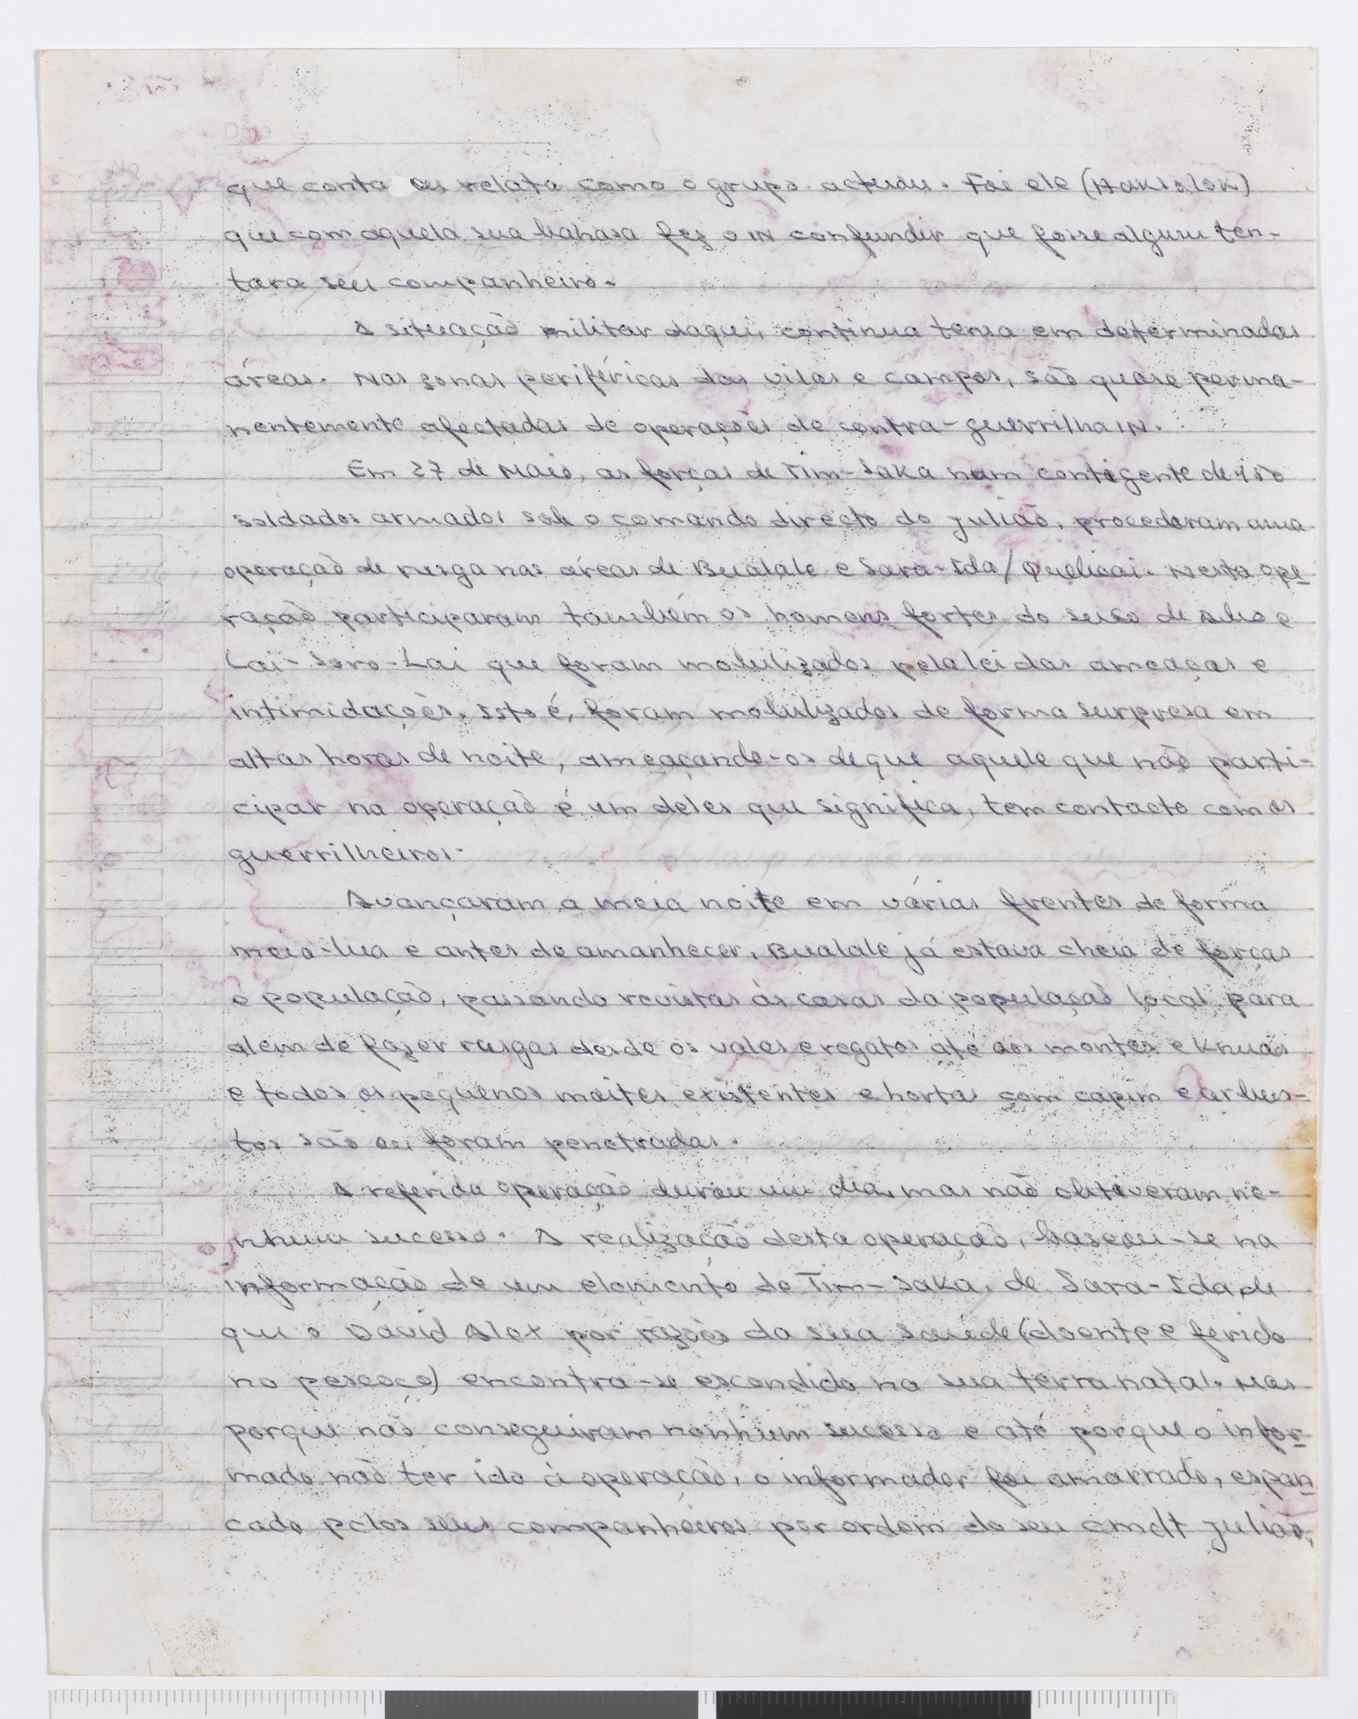 que conta ou relata como o grupo actuou. Foi ele (Haksolok)
que com aquela sua bahasa fez o IN confundir que fosse algum ten-
tara seu companheiro.
A situação militar daqui, continua tensa em determinadas
áreas. Nas zonas periféricas das vilas e campos, são quase perma-
nentemente afectadas de operações de contra-guerrilha IN.
Em 27 de Maio, as forças de Tim-Saka num contigente de 150
soldados armados sob o comando directo do Julião, procederam uma
operação de rusga nas áreas de Bualale e Sara-Ida/Quelicai. Nesta ope-
ração participaram também os homens fortes do suco de Abo e
Lai-Soro-Lai que foram mobilizados pela lei das ameaças e
intimidações, isto é, foram mobilizados de forma surpresa em
altas horas de noite, ameaçando-os de que aquele que não parti-
cipar na operação é um deles que significa, tem contacto com os
guerrilheiros.
Avançaram a meia noite em várias frentes de forma
meia-lua e antes do amanhecer, Bualale já estava cheia de forças
e população, passando revistas às casas da população local para
alem de fazer rusgas desde os vales e regatos até aos montes e Knuas
e todos os pequenos moites existentes e hortas com capim e arbus-
tos são ou foram penetradas.
A referida operação durou um dia, mas não obtiveram ne-
nhum sucesso. A realização desta operação, baseou-se na
informação de um elemento de Tim-Saka, de Sara-Ida de
que o David Alex por razões da sua saúde (doente e ferido
no pescoço) encontra-se escondido na sua terra natal. Mas
porque não conseguiram nenhum sucesso e até porque o infor-
mado não ter ido à operação, o informador foi amarrado, espan-
cado pelos seus companheiros por ordem do seu cmdt Julião,